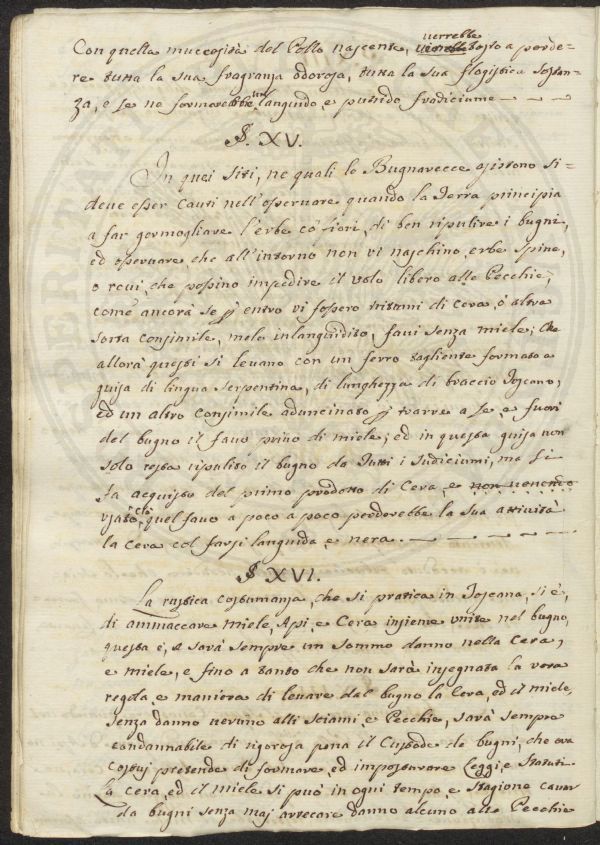 Con quella muccosità del Pollo nascente, verrebbe tosto a perde=
re tutta la sua fragranza odorosa, tutta la sua flogistica sostan=
za, e se ne formarebbe un languido, e putrido fradiciume
§. XV.
In quei siti, ne quali le Bugnarecce esistono si
deve esser cauti nell'osservare quando la Terra principia
a far germogliare l'erbe co' fiori, di ben ripulire i bugni,
ed osservare, che all'intorno non vi naschino, erbe spine,
o rovi, che possino impedire il volo libero alle Pecchie,
come ancora se p entro vi fossero tritumi di cera, o altra
sorta consimile, mele inlanguidito, favi senza miele; che
allora questi si levano con un ferro tagliente formato a
guisa di lingua serpentina, di lunghezza di braccio Toscano,
ed un altro consimile aduncinato p trarre a se, e fuori
del bugno il favo privo di miele; ed in questa guisa non
solo resta ripulito il bugno da tutti i sudiciumi, ma si
fa acquisto del primo prodotto di Cera, e non venendo
usato ciò, quel favo a poco a poco perderebbe la sua attività
la cera col farsi languida, e nera.
§ XVI.
La rustica costumanza, che si pratica in Toscana, si è,
di ammaccare miele, Api, e Cera insieme unite nel bugno,
questa è, e sarà sempre un sommo danno nella Cera,
e miele, e fino a tanto che non sarà insegnata la vera
regola, e maniera di levare dal bugno la Cera, ed il miele,
senza danno veruno alli sciami, e Pecchie, sarà sempre
condannabile di rigorosa pena il Custode de bugni, che ora
costui pretende di formare, ed imposturare Leggi, e Statuti
La Cera, ed il miele si può in ogni tempo, e stagione cavar
da bugni senza maj arrecare danno alcuno alle Pecchie